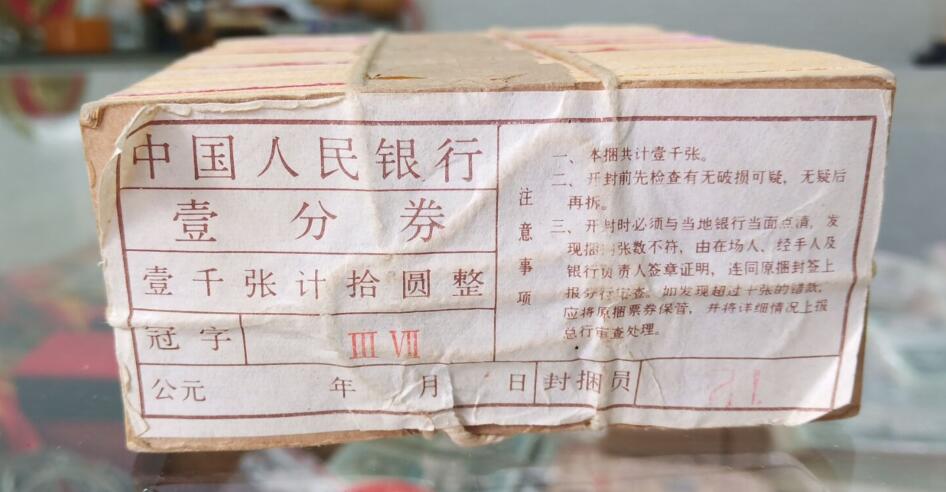 中国人民银行
壹分券
壹千张计拾圆整
冠字 III VII
公元 年 月 日 封捆员
注意事项
一、本捆共计壹千张。
二、开封前先检查有无破损可疑，无疑后
再拆。
三、开封时必须与当地银行当面点清，发
现捆内张数不符，由在场人、经手人及
银行负责人签章证明，连同原捆封签上
报分行审查。如发现超过十张的错款，
应将原捆票券保管，并将详细情况上报
总行审查处理。